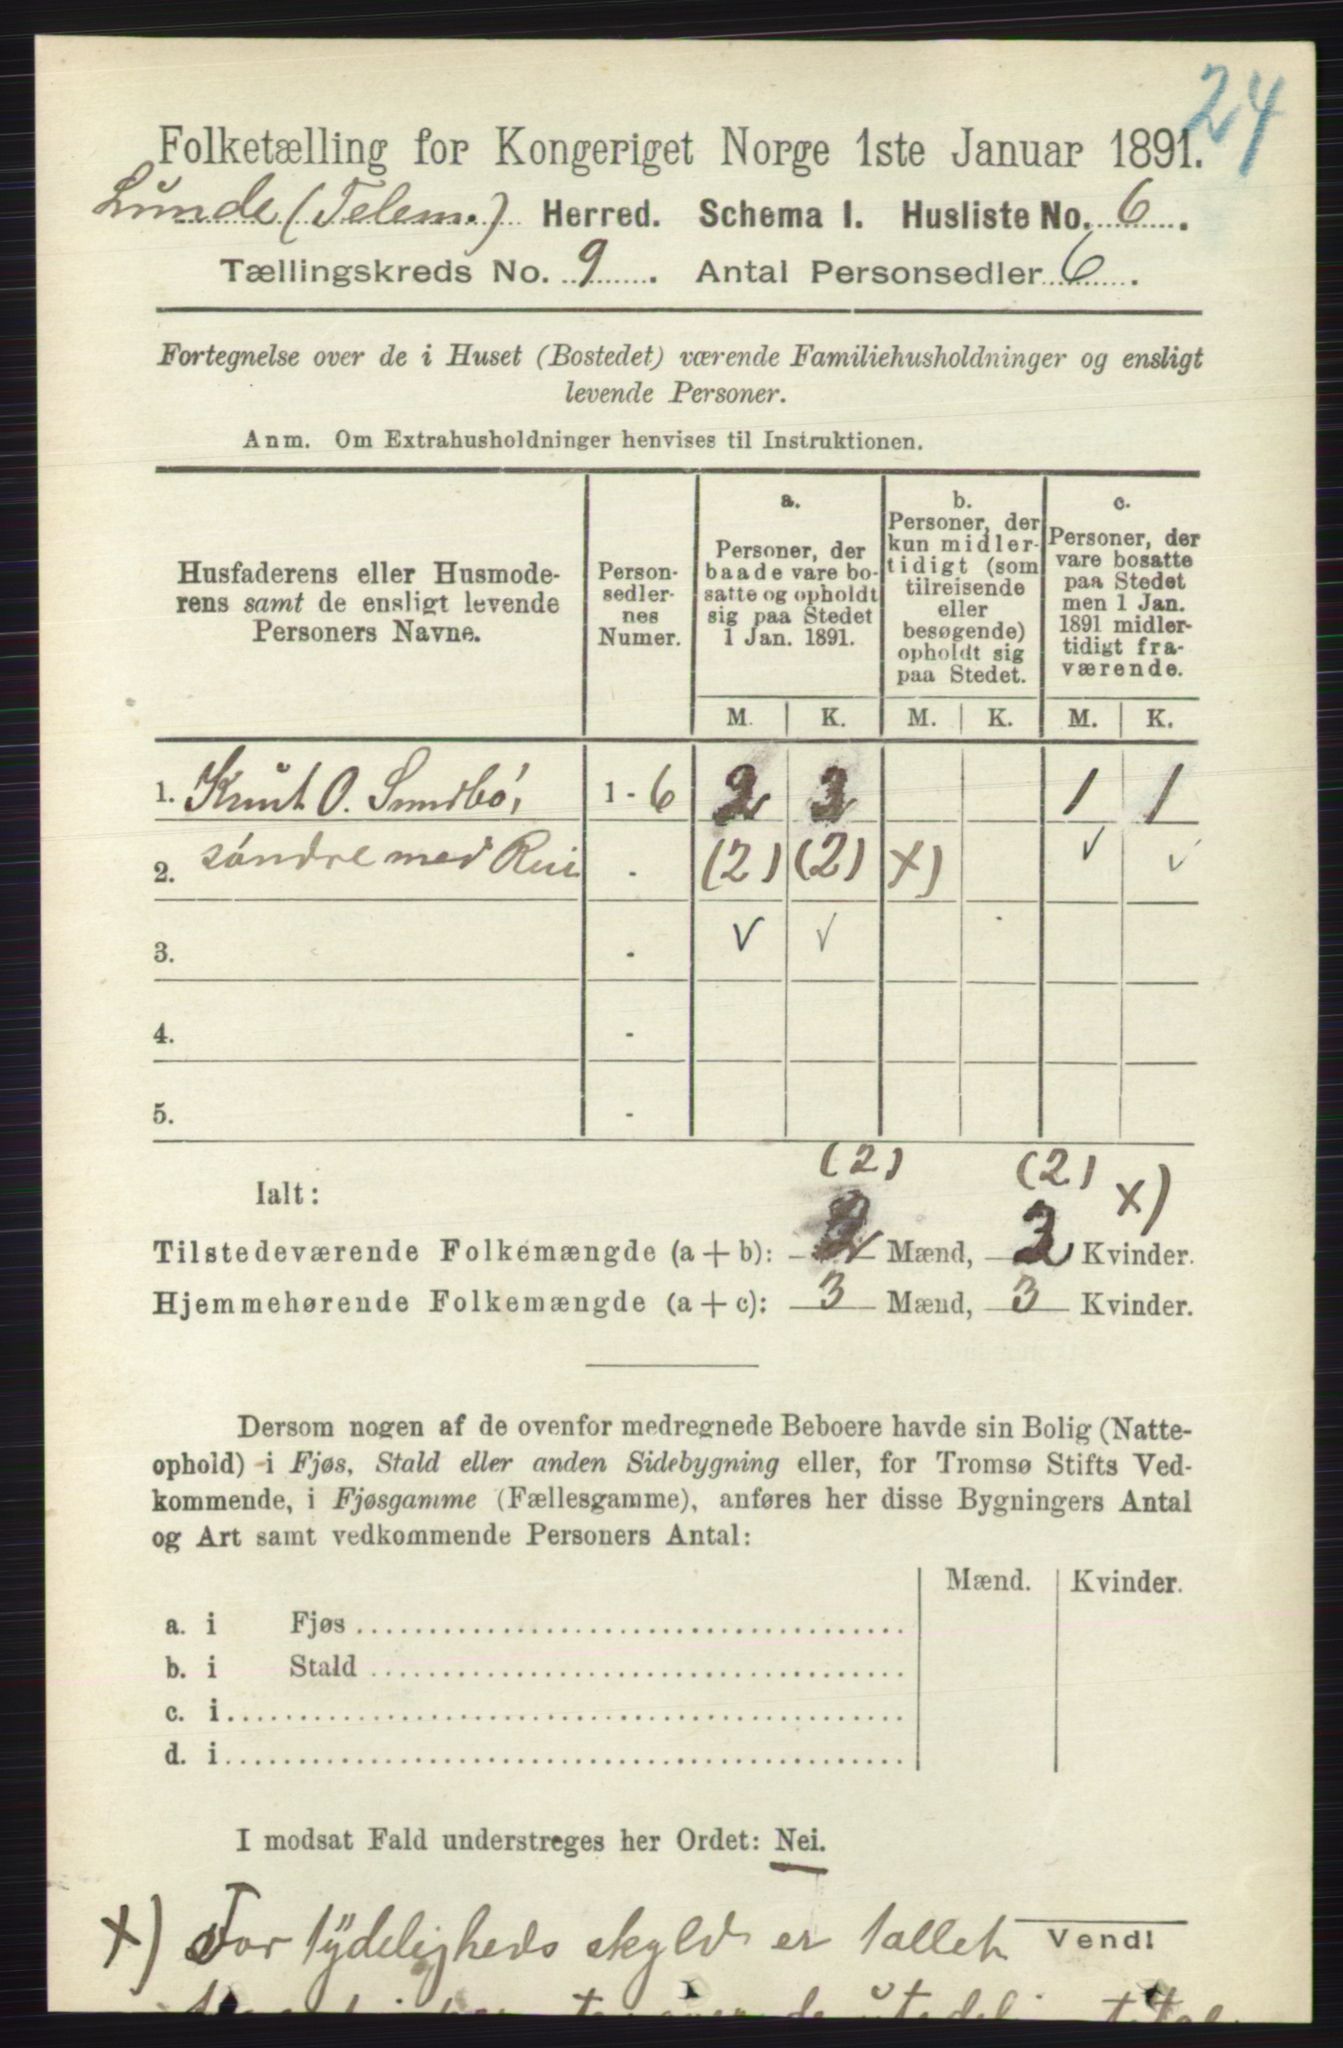 24
Folketælling for Kongeriget Norge 1ste Januar 1891.
Lunde (Telem.) Herred. Schema I. Husliste No. 6.
Tællingskreds No. 9. Antal Personsedler 6.
Fortegnelse over de i Huset (Bostedet) værende Familiehusholdninger og ensligt
levende Personer.
Anm. Om Extrahusholdninger henvises til Instruktionen.
Husfaderens eller Husmode-
rens samt de ensligt levende
Personers Navne.
Person-
sedler-
nes
Numer.
a.
Personer, der
baade vare bo-
satte og opholdt
sig paa Stedet
1 Jan. 1891.
b.
Personer, der
kun midler-
tidigt (som
tilreisende
eller
besøgende)
opholdt sig
paa Stedet.
c.
Personer, der
vare bosatte
paa Stedet
men 1 Jan.
1891 midler-
tidigt fra-
værende.
M. K. M. K. M. K.
1. Knut O. Sundbö, 1 - 6 2 2 1 1
2. söndre med Rui - (2) (2) x) √ √
3. - √ √
4. -
5. -
(2) (2) x)
Ialt:
Tilstedeværende Folkemængde (a + b): 2 Mænd, 2 Kvinder.
Hjemmehørende Folkemængde (a + c): 3 Mænd, 3 Kvinder.
Dersom nogen af de ovenfor medregnede Beboere havde sin Bolig (Natte-
ophold) i Fjøs, Stald eller anden Sidebygning eller, for Tromsø Stifts Ved-
kommende, i Fjøsgamme (Fællesgamme), anføres her disse Bygningers Antal
og Art samt vedkommende Personers Antal:
Mænd. Kvinder.
a. i Fjøs
b. i Stald
c. i
d. i
I modsat Fald understreges her Ordet: Nei.
x) For tydeligheds skyld er tallet
Vend!